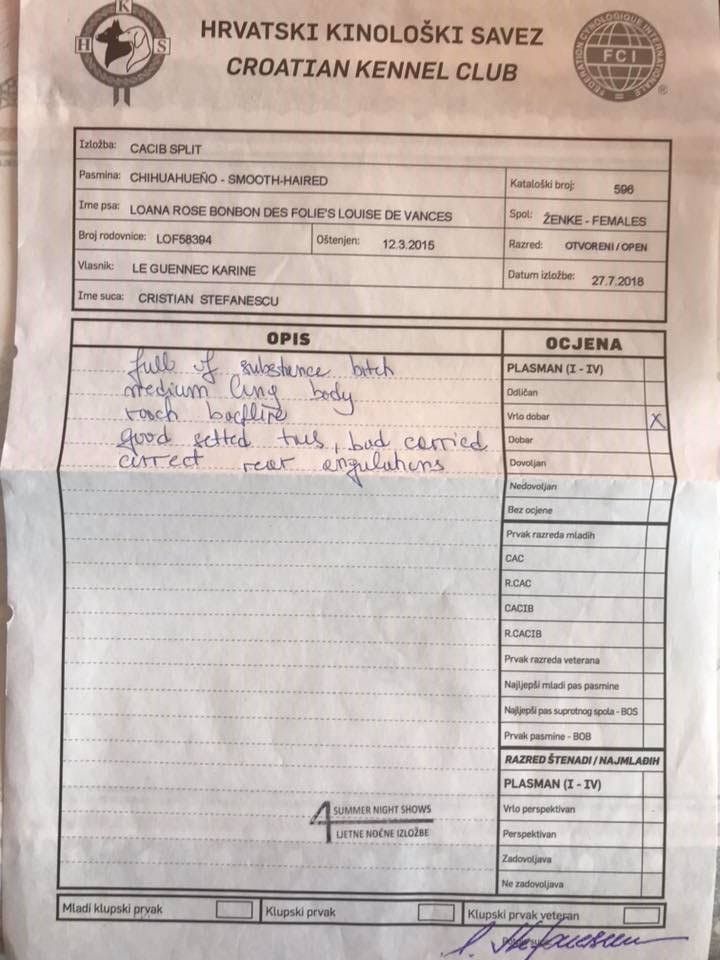 H K S
HRVATSKI KINOLOŠKI SAVEZ
CROATIAN KENNEL CLUB
FEDERATION CYNOLOGIQUE INTERNATIONALE
FCI
®
Izložba: CACIB SPLIT
Pasmina: CHIHUAHUEÑO - SMOOTH-HAIRED
Kataloški broj: 596
Ime psa: LOANA ROSE BONBON DES FOLIE'S LOUISE DE VANCES
Spol: ŽENKE - FEMALES
Broj rodovnice: LOF58394
Oštenjen: 12.3.2015
Razred: OTVORENI / OPEN
Vlasnik: LE GUENNEC KARINE
Datum izložbe: 27.7.2018
Ime suca: CRISTIAN STEFANESCU
OPIS
full of substance bitch
medium long body
roach backline
good setted tail, bad carried
correct rear angulations
OCJENA
PLASMAN (I - IV)
Odličan
Vrlo dobar X
Dobar
Dovoljan
Nedovoljan
Bez ocjene
Prvak razreda mladih
CAC
R.CAC
CACIB
R.CACIB
Prvak razreda veterana
Najljepši mladi pas pasmine
Najljepši pas suprotnog spola - BOS
Prvak pasmine - BOB
RAZRED ŠTENADI / NAJMLAĐIH
PLASMAN (I - IV)
Vrlo perspektivan
Perspektivan
Zadovoljava
Ne zadovoljava
4 SUMMER NIGHT SHOWS
LJETNE NOĆNE IZLOŽBE
Mladi klupski prvak
Klupski prvak
Klupski prvak veteran